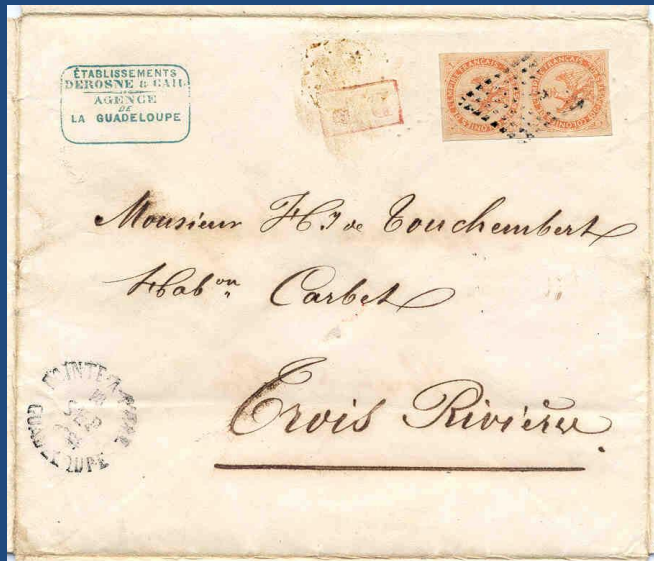 ÉTABLISSEMENTS
DEROSNE & CAIL
AGENCE
DE
LA GUADELOUPE
Monsieur de Touchembert
Habon Carbet
Trois Rivières
POINTE-A-PITRE
SEP
GUADELOUPE